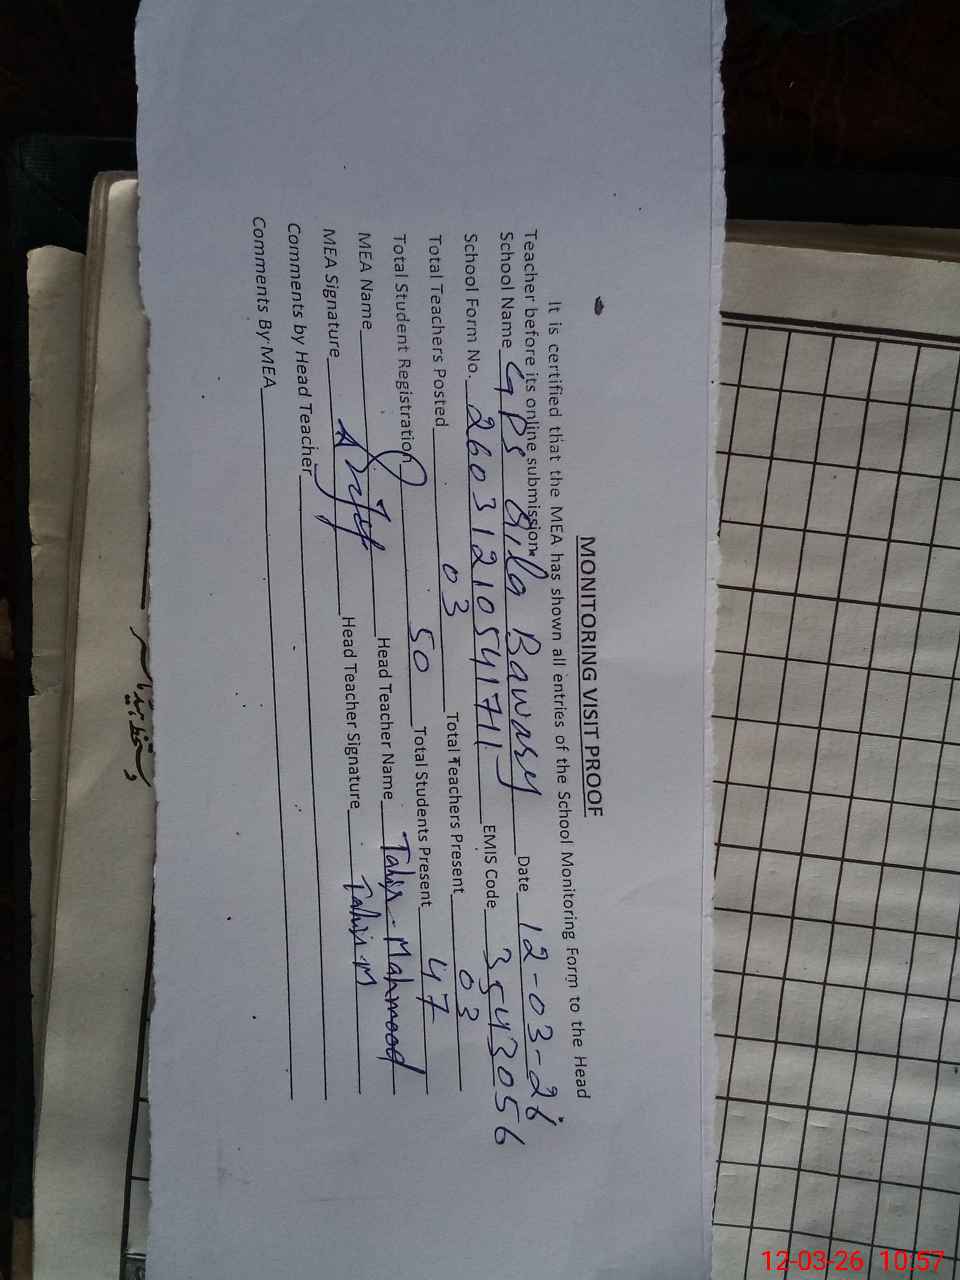 MONITORING VISIT PROOF
It is certified that the MEA has shown all entries of the School Monitoring Form to the Head
Teacher before its online submission.
School Name GPS Qila Bawary Date 12-03-26
School Form No. 26031210541711 EMIS Code 3543056
Total Teachers Posted 03 Total Teachers Present 03
Total Student Registration 50 Total Students Present 47
MEA Name Head Teacher Name Tahir-Mahmood
MEA Signature Head Teacher Signature Tahir.M
Comments by Head Teacher
Comments By MEA
12-03-26 10:57